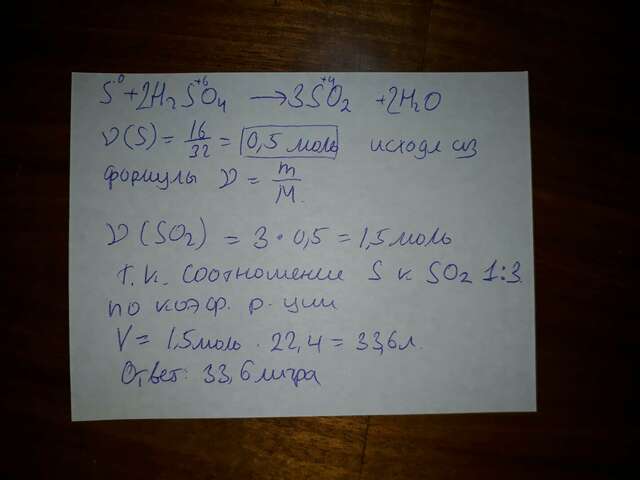 S⁰ + 2H₂S⁺⁶O₄ → 3S⁺⁴O₂ + 2H₂O
ν(S) = 16/32 = 0,5 моль исходя из
формулы ν = m/M.
ν(SO₂) = 3 · 0,5 = 1,5 моль
т.к. соотношение S к SO₂ 1:3
по коэф. р-ции
V = 1,5 моль · 22,4 = 33,6 л.
Ответ: 33,6 литра